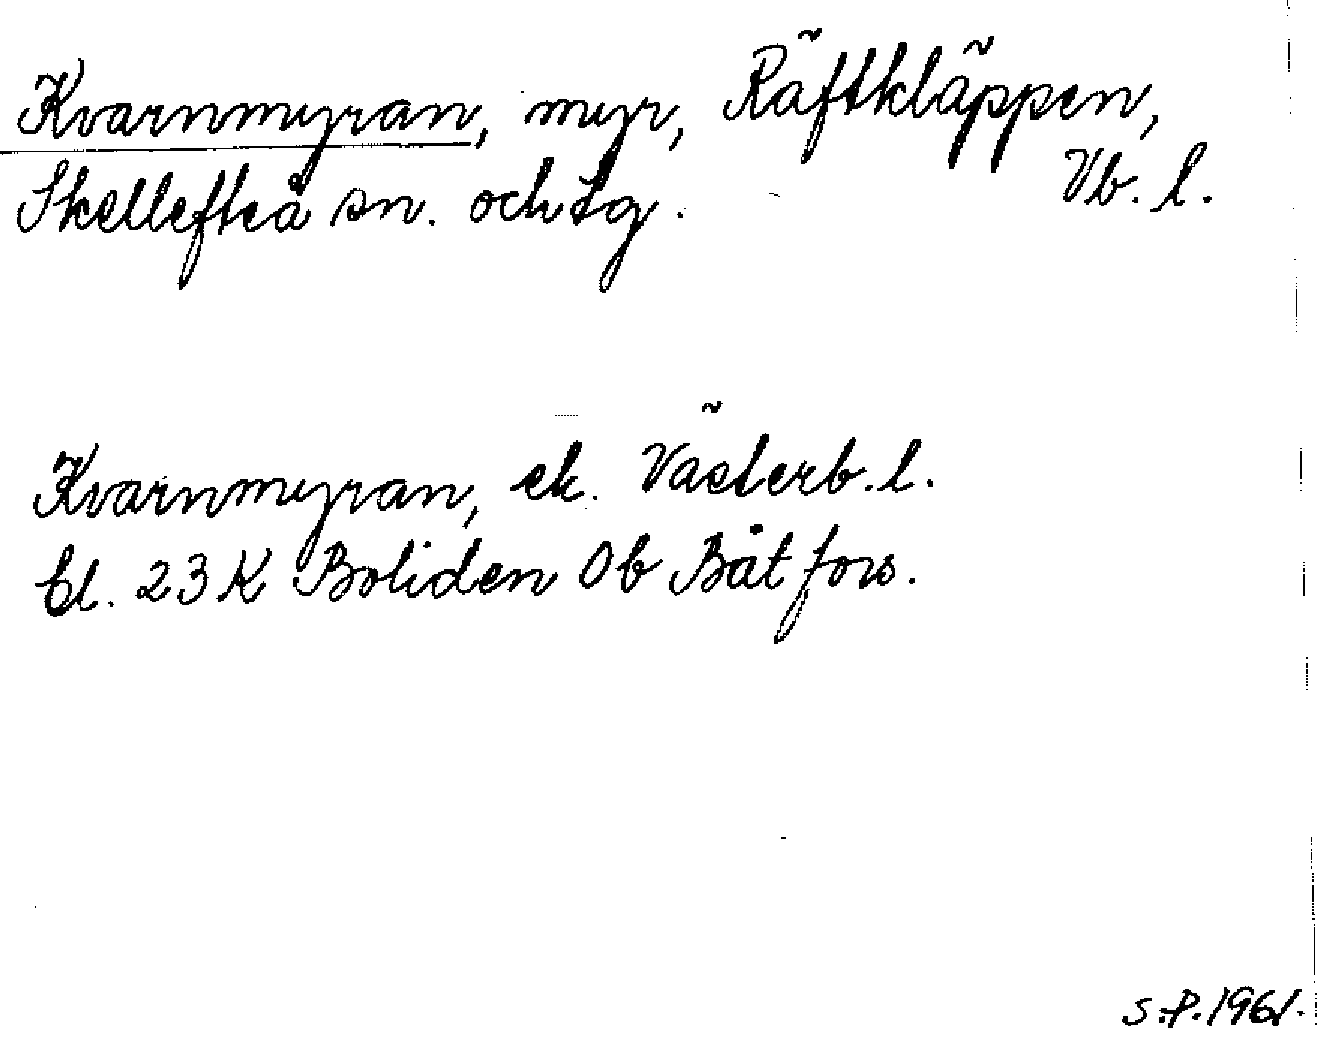 Kvarnmyran, myr, Räftkläppen,
Skellefteå sn. och tg. Vb. l.
Kvarnmyran, ek. Västerb. l.
bl. 23 K Boliden 0b Båtfors.
S.P. 1961.